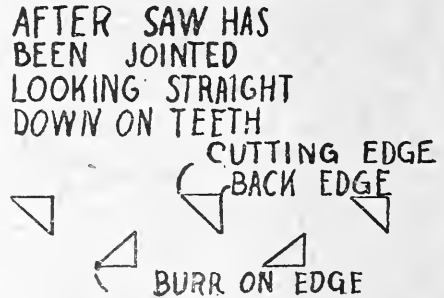 AFTER SAW HAS
BEEN JOINTED
LOOKING STRAIGHT
DOWN ON TEETH
CUTTING EDGE
BACK EDGE
BURR ON EDGE